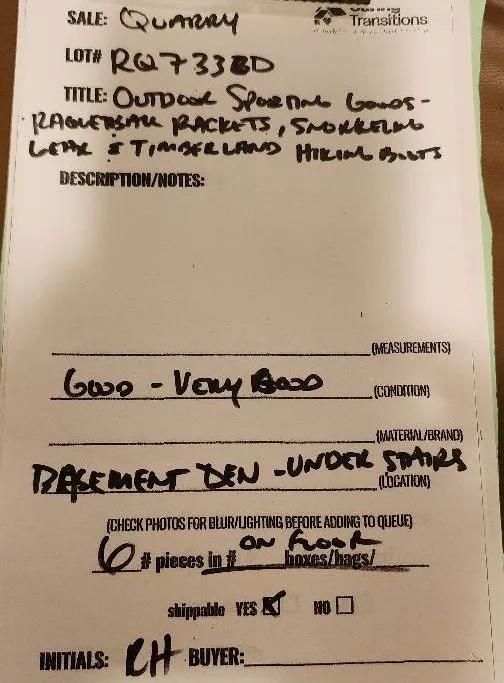 SALE: QUARRY
Transitions
LOT# RQ733BD
TITLE: OUTDOOR SPORTING GOODS -
RAQUETBALL RACKETS, SNORKELING
GEAR & TIMBERLAND HIKING BOOTS
DESCRIPTION/NOTES:
(MEASUREMENTS)
GOOD - VERY GOOD (CONDITION)
(MATERIAL/BRAND)
BASEMENT DEN - UNDER STAIRS
(LOCATION)
(CHECK PHOTOS FOR BLUR/LIGHTING BEFORE ADDING TO QUEUE)
ON FLOOR
6 # pieces in # boxes/bags/
shippable YES NO
INITIALS: RH BUYER: